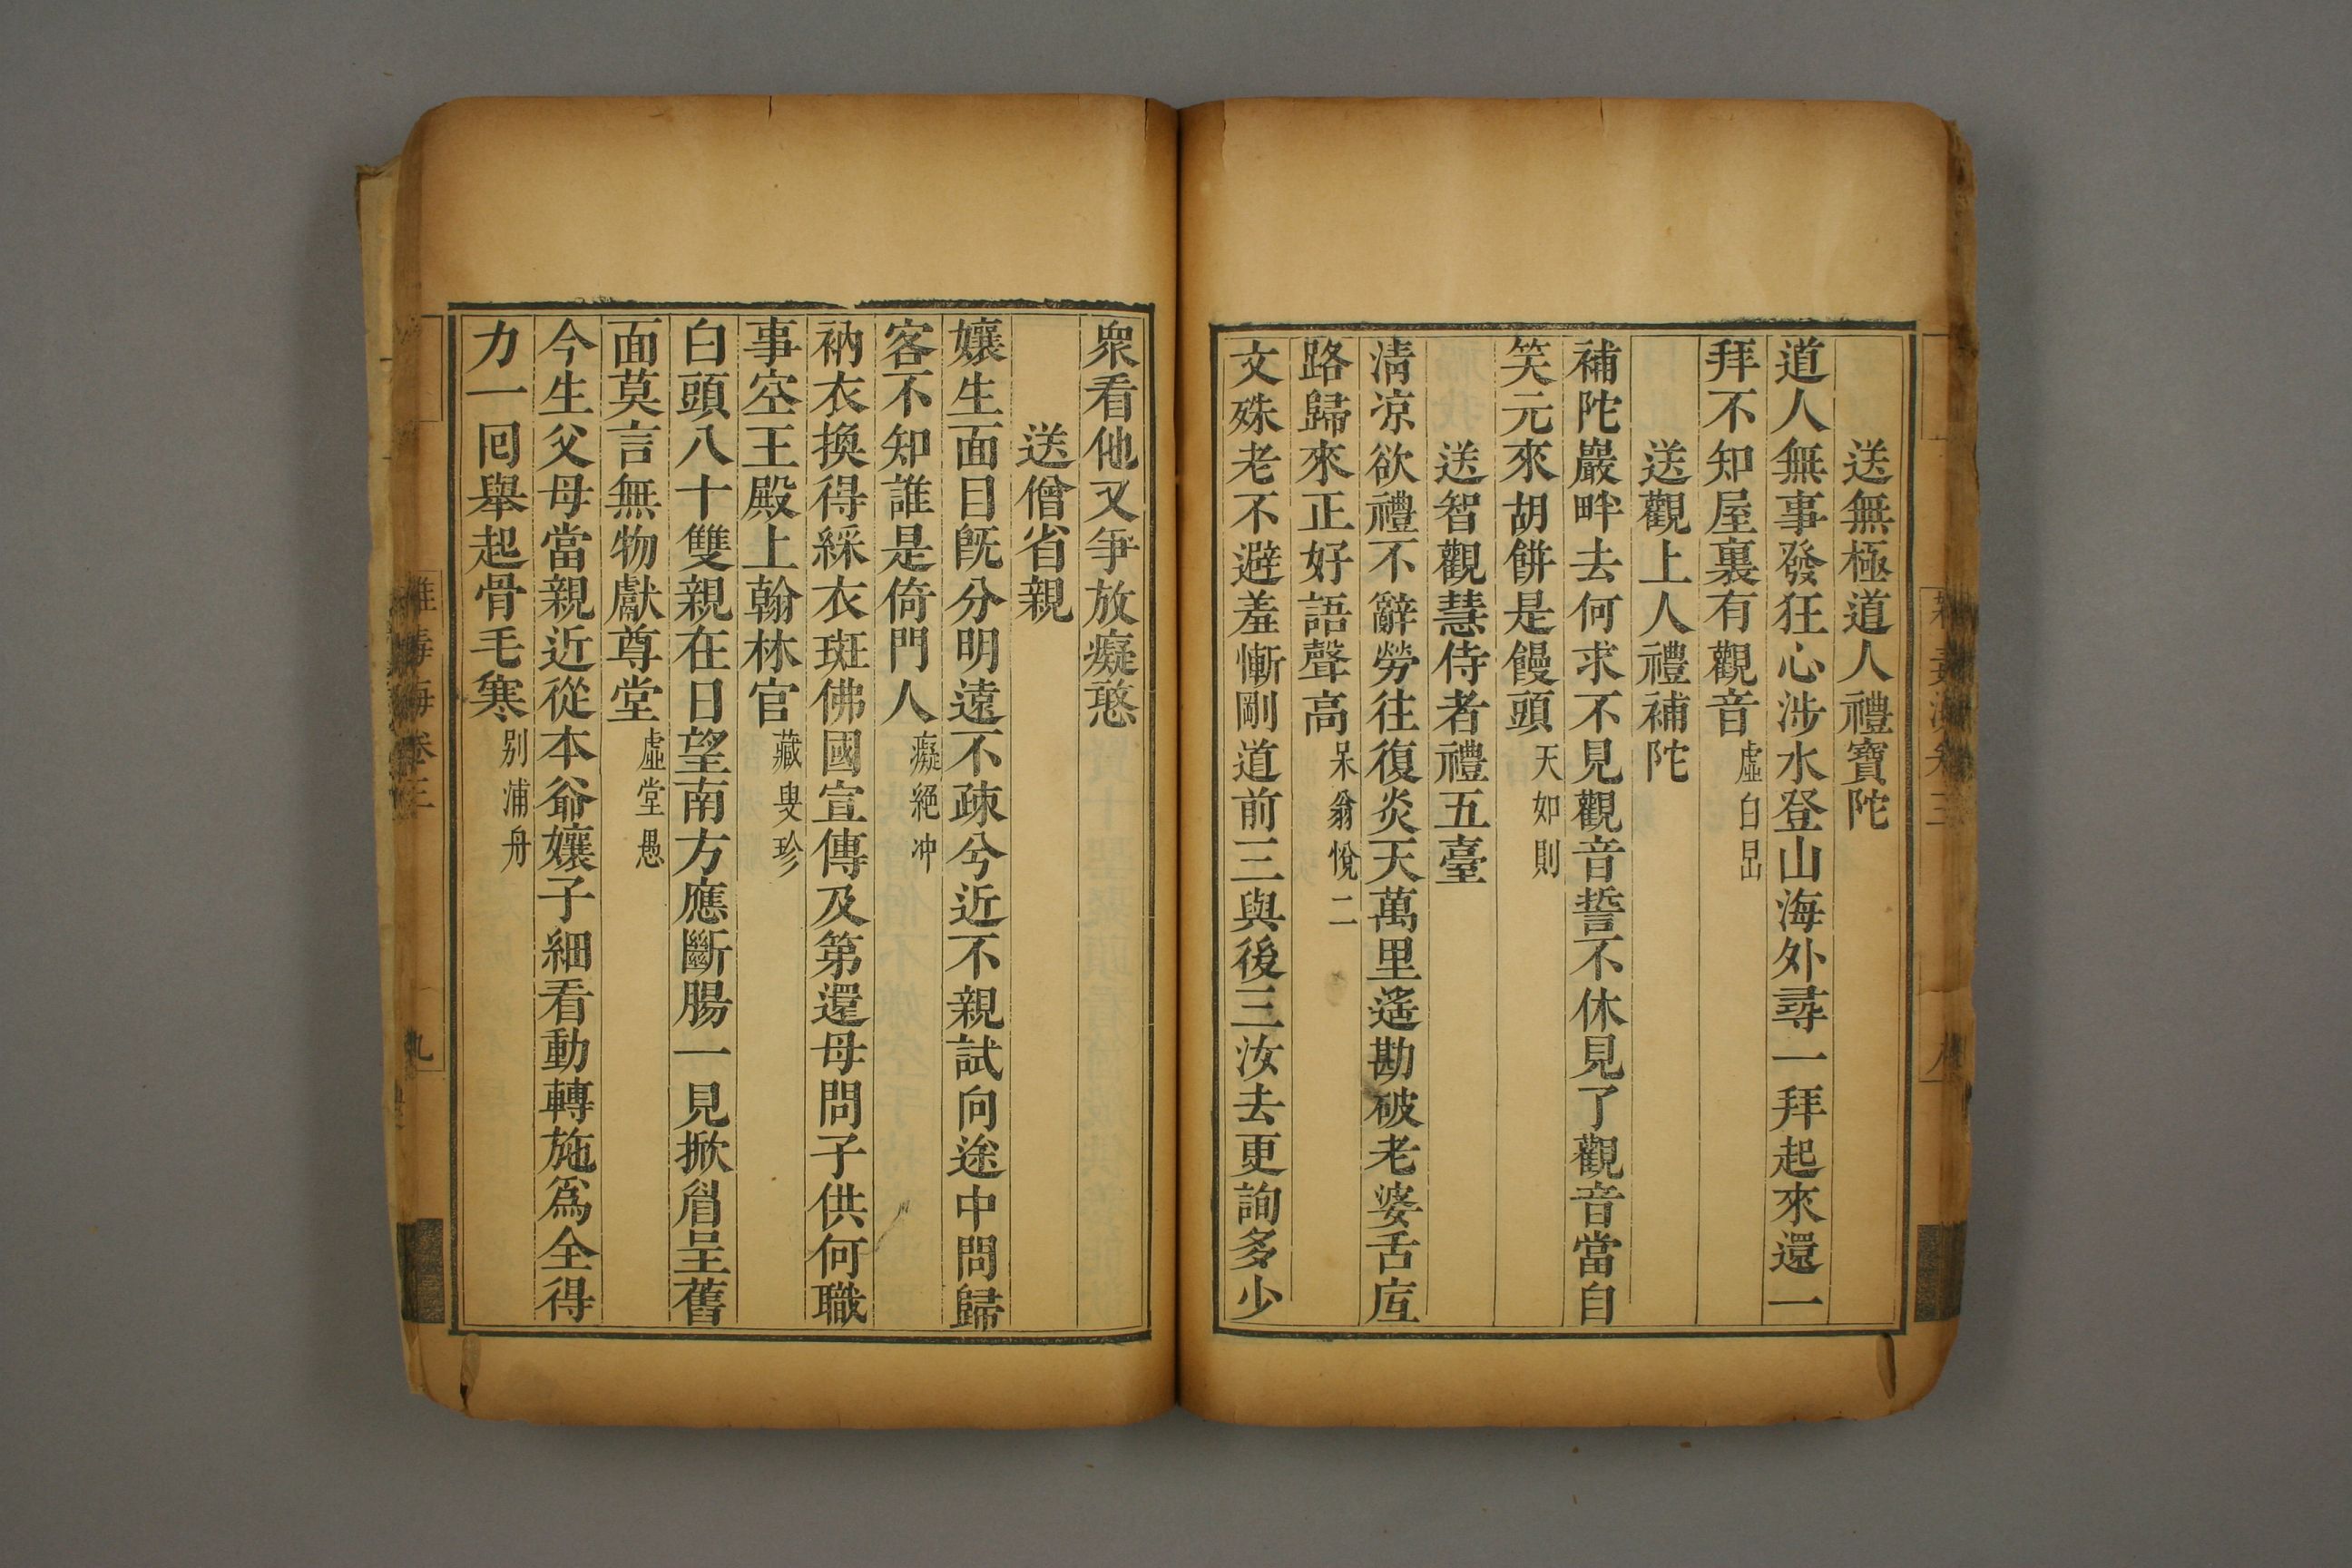 送無極道人禮寶陀
道人無事發狂心涉水登山海外尋一拜起來還一
拜不知屋裏有觀音虛白㫤
送觀上人禮補陀
補陀巖畔去何求不見觀音誓不休見了觀音當自
笑元來胡餅是饅頭天如則
送智觀慧侍者禮五臺
清凉欲禮不辭勞往復炎天萬里遙勘破老婆舌𢈔
路歸來正好語聲高呆翁悅二
文殊老不避羞慚剛道前三與後三汝去更詢多少
衆看他又爭放癡憨
送僧省親
孃生面目旣分明遠不疎兮近不親試向途中問歸
客不知誰是倚門人癡絕冲
衲衣換得綵衣斑佛國宣傳及第還母問子供何職
事空王殿上翰林官藏叟珍
白頭八十雙親在日望南方應斷腸一見掀眉呈舊
面莫言無物獻尊堂虛堂愚
今生父母當親近從本爺孃子細看動轉施爲全得
力一回舉起骨毛寒別浦舟
海卷三
九